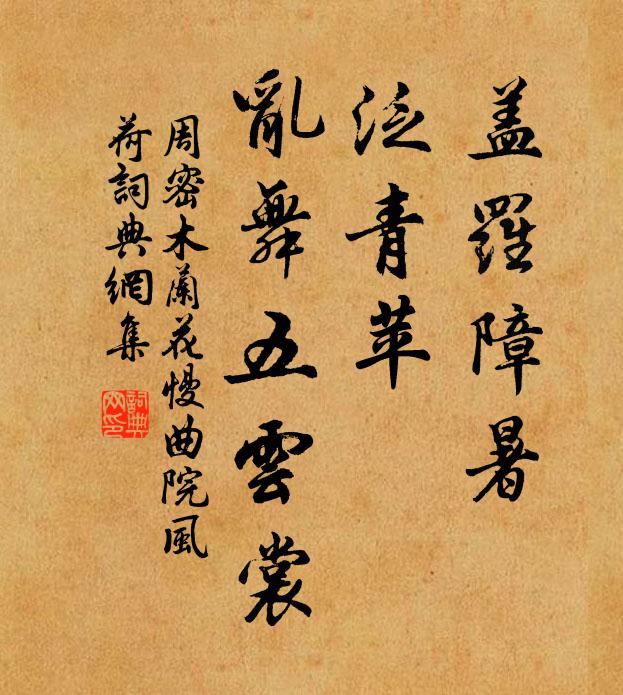 盖羅障暑
泛青苹
亂舞五雲裳
周密木蘭花慢曲院風
荷詞典網集
詞典
网印